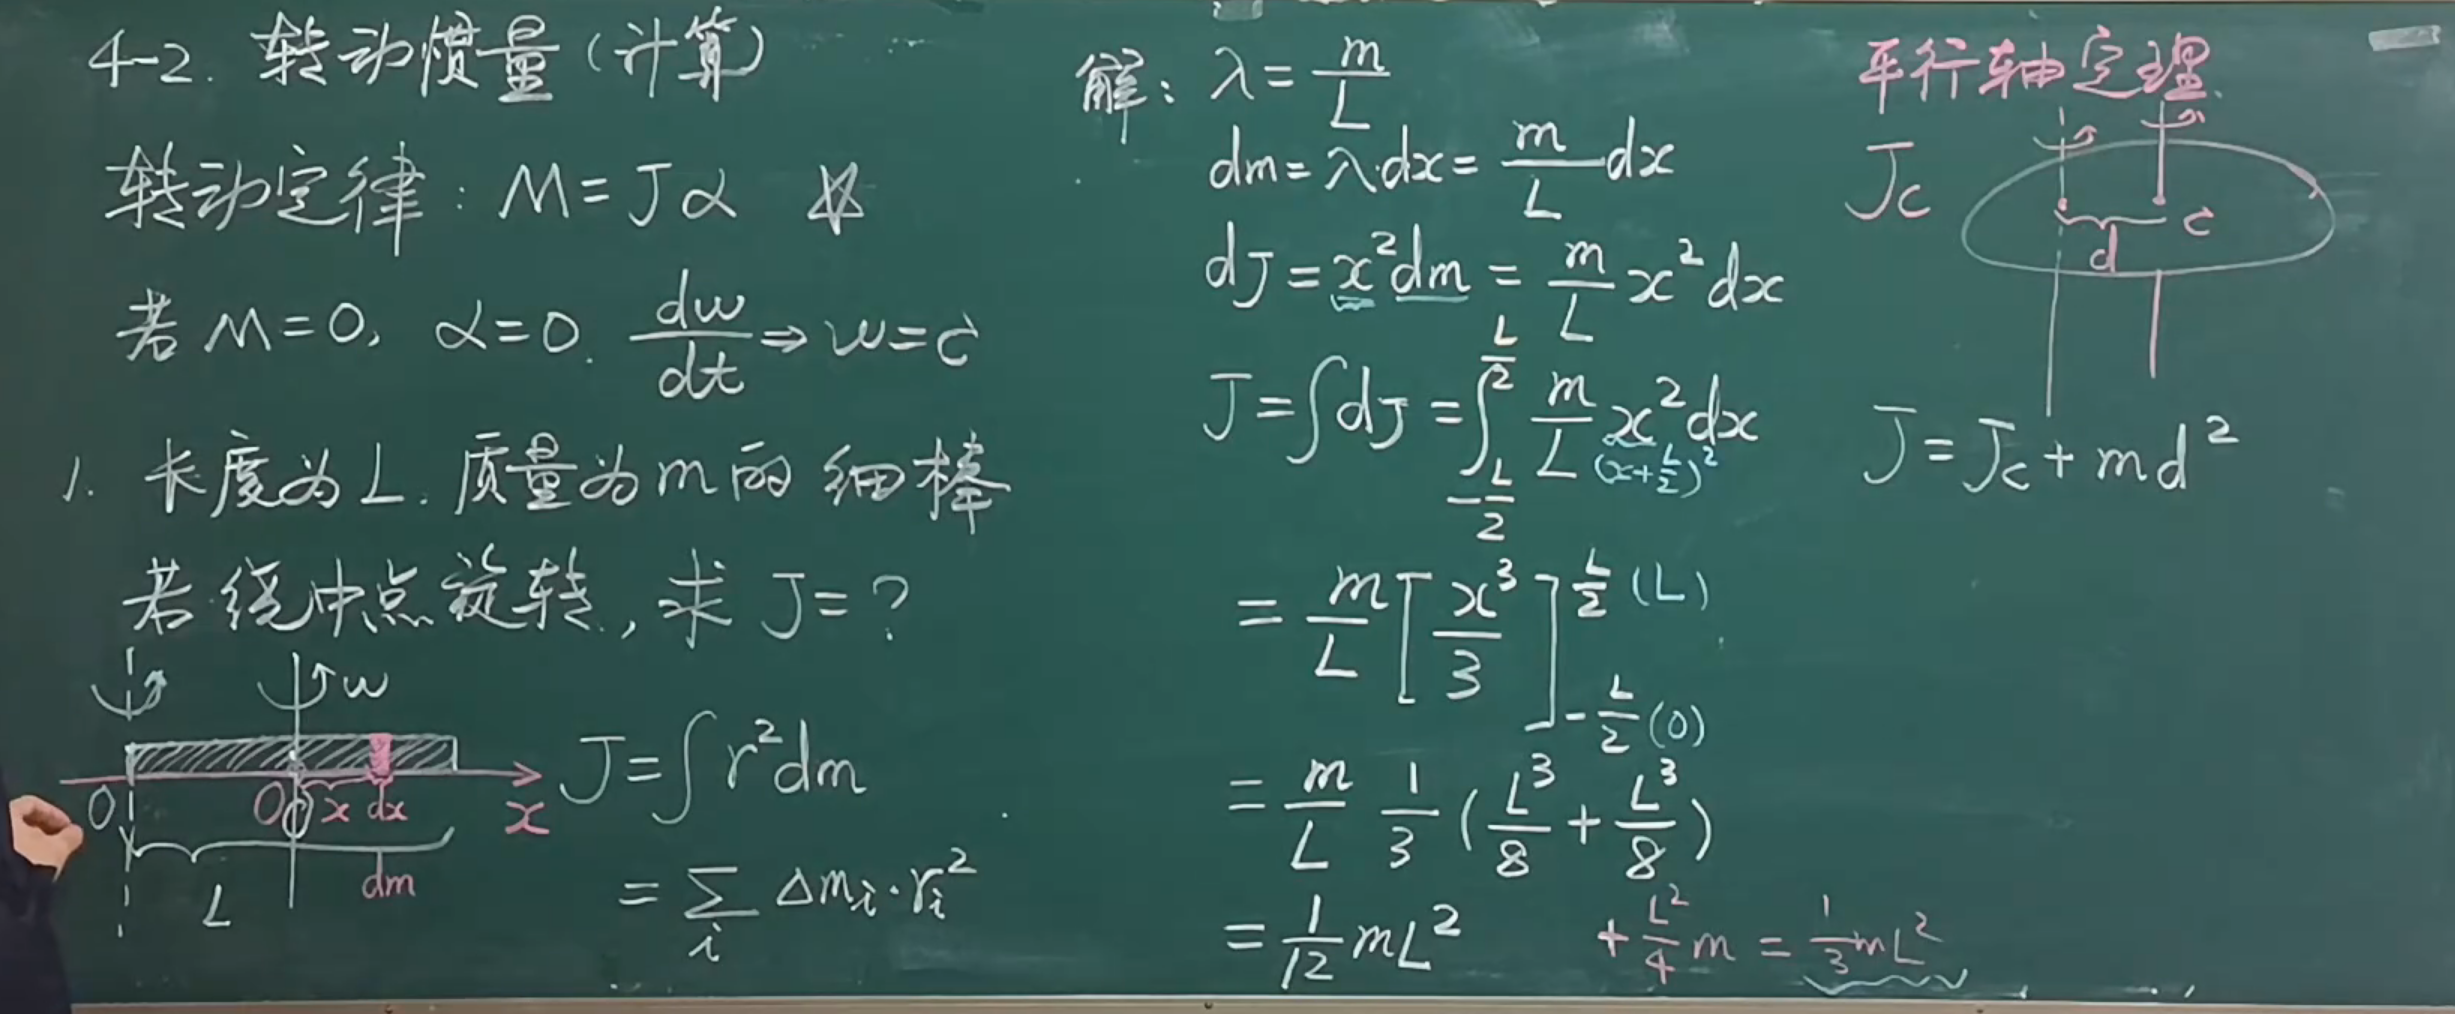 4-2. 转动惯量(计算)
转动定律: M=Jα ☆
若 M=0, α=0. dω/dt ⇒ ω=c
1. 长度为L. 质量为m的细棒
若绕中点旋转, 求 J=?
ω
O O x dx x
L dm
J=∫r²dm
=∑i Δmi·ri²
解: λ=m/L
dm=λ·dx=m/L dx
dJ=x²dm=m/L x²dx
J=∫dJ=∫_{-L/2}^{L/2} m/L x²dx
(x+L/2)²
=m/L [x³/3]_{-L/2 (0)}^{L/2 (L)}
=m/L 1/3 (L³/8+L³/8)
=1/12 mL² +L²/4 m=1/3 mL²
平行轴定理
Jc
d c
J=Jc+md²